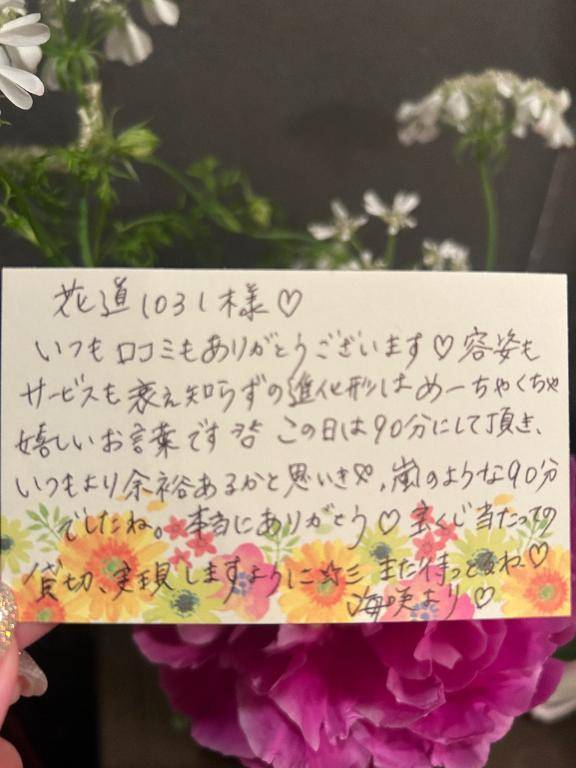 花道1031様♡
いつも口コミもありがとうございます♡容姿も
サービスも衰え知らずの進化形はめーちゃくちゃ
嬉しいお言葉です この日は90分にして頂き、
いつもより余裕あるかと思いきや、嵐のような90分
でしたね。本当にありがとう♡宝くじ当たっての
貸切、実現しますように☆彡 また待っとるね♡
海咲より♡